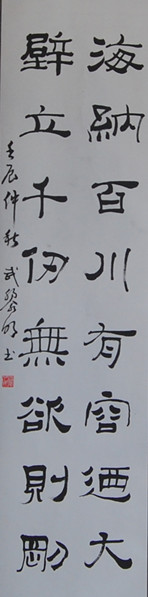 海納百川有容迺大
壁立千仞無欲則剛
壬辰仲秋 武黎明书